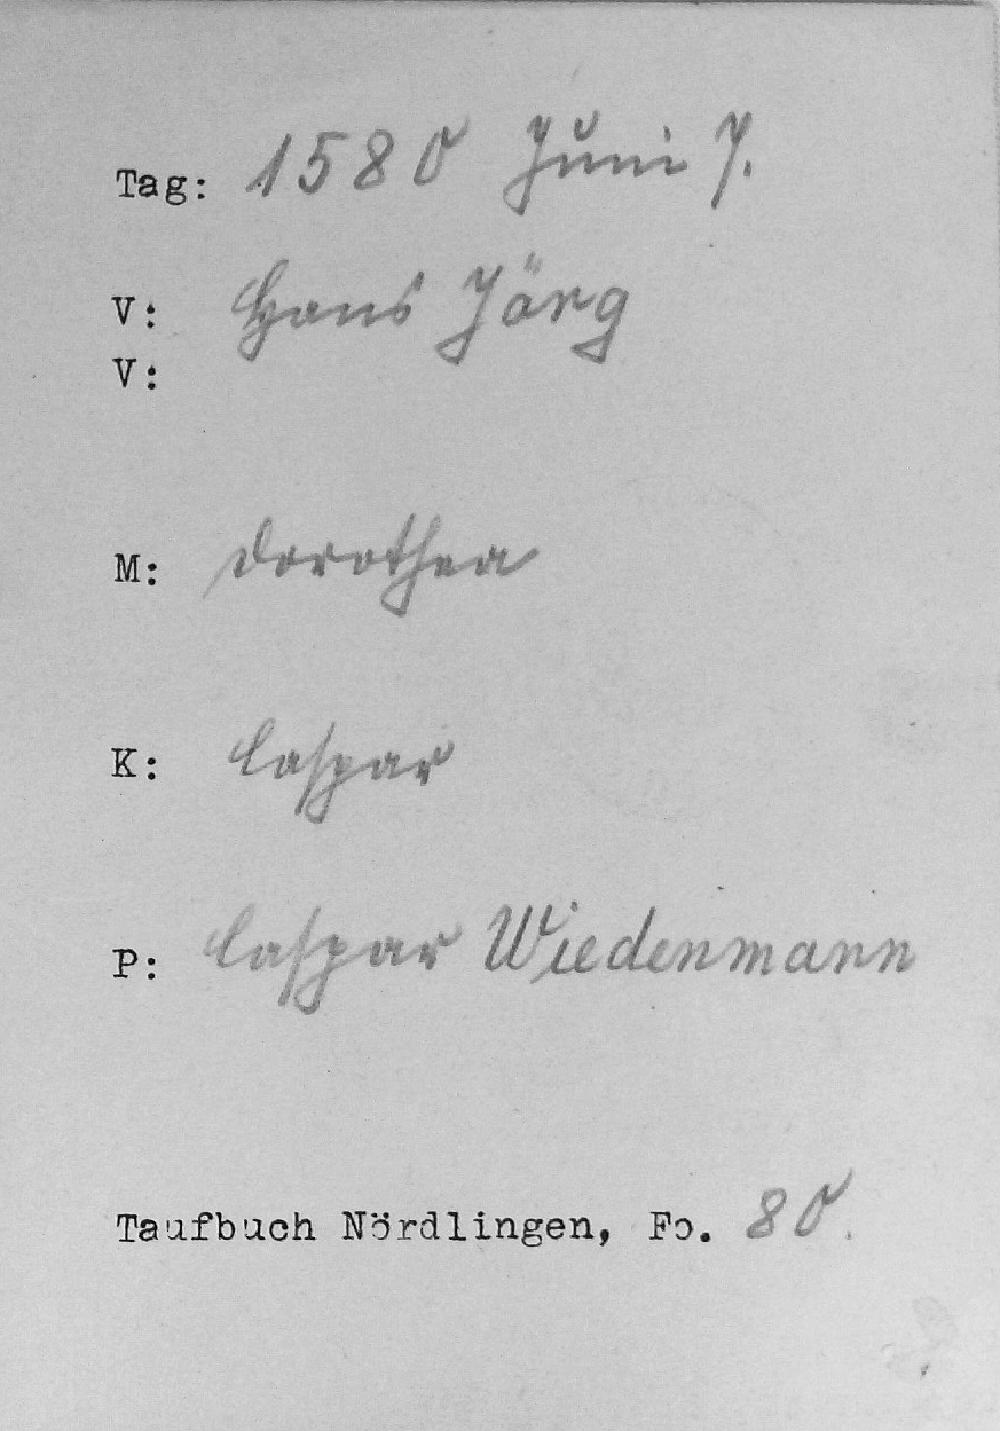 Tag: 1580 Juni 7.
V: Hans Jörg
V:
M: Dorothea
K: Caspar
P: Caspar Wiedenmann
Taufbuch Nördlingen, Fo. 80.